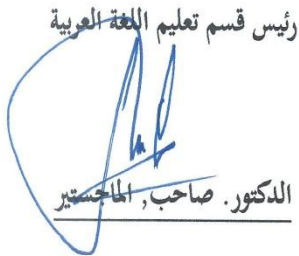 رئيس قسم تعليم اللغة العربية
الدكتور. صاحب, الماجستير